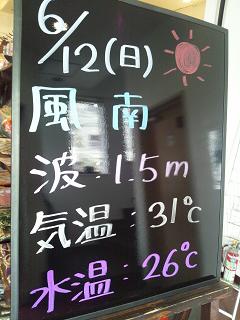 6/12(日)
風 南
波:1.5m
気温:31℃
水温:26℃